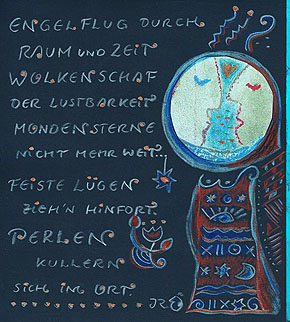 ENGELFLUG DURCH
RAUM UND ZEIT
WOLKENSCHAF
DER LUSTBARKEIT
MONDENSTERNE
NICHT MEHR WEIT...
FEISTE LÜGEN
ZIEH'N HINFORT.
PERLEN
KULLERN
SICH INS ORT.